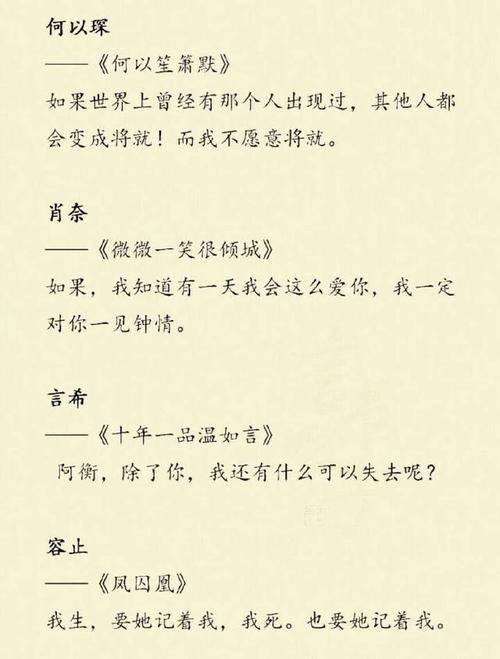 何以琛
——《何以笙箫默》
如果世界上曾经有那个人出现过，其他人都
会变成将就！而我不愿意将就。
肖奈
——《微微一笑很倾城》
如果，我知道有一天我会这么爱你，我一定
对你一见钟情。
言希
——《十年一品温如言》
阿衡，除了你，我还有什么可以失去呢？
容止
——《凤囚凰》
我生，要她记着我，我死。也要她记着我。